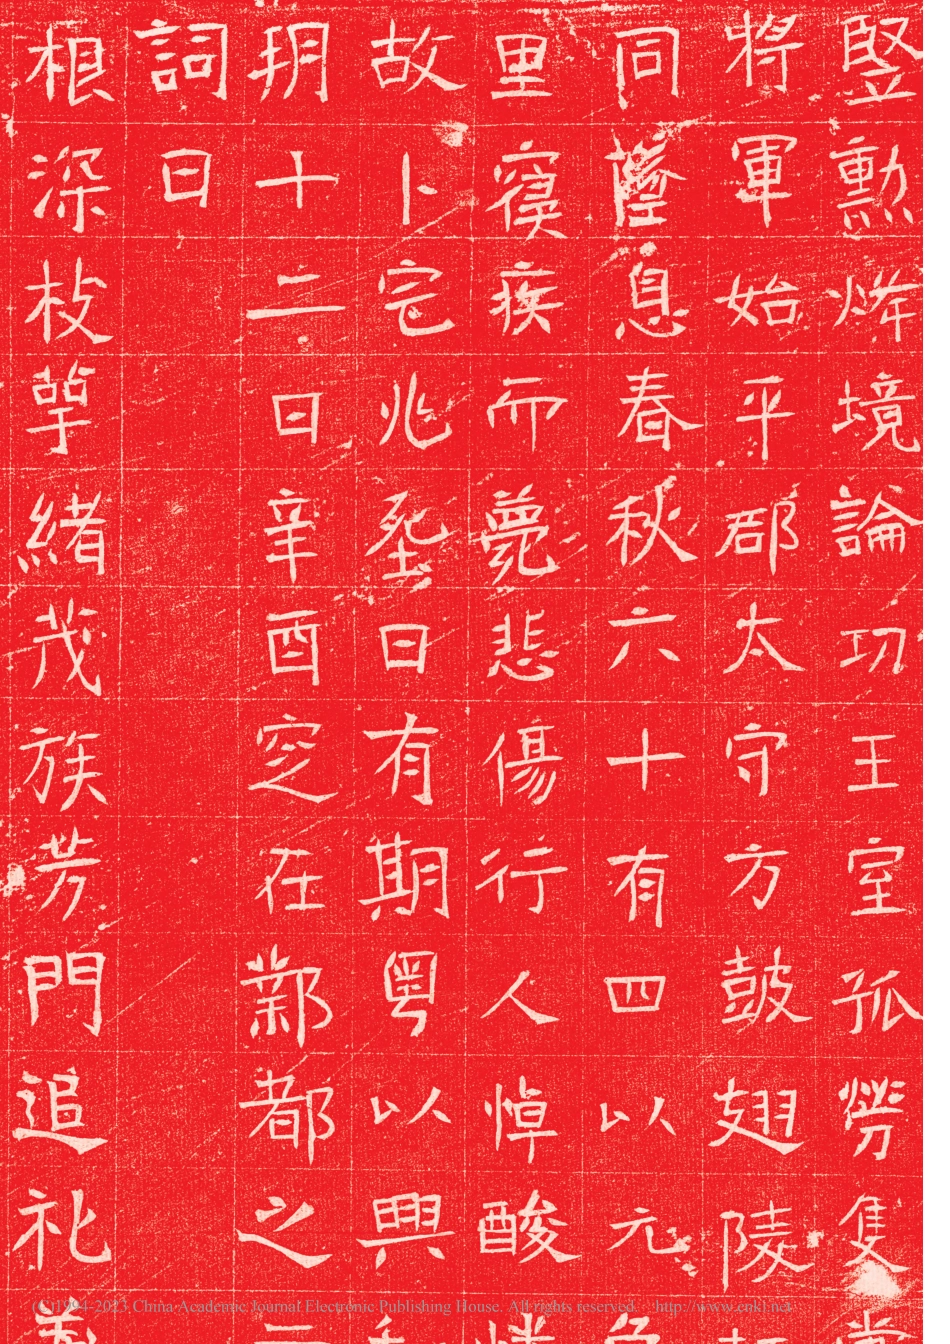 竪勲烽境論功王室孤勞隻
將軍始平郡太守方鼓翅陵
同蔭息春秋六十有四以元
里寢疾而薨悲傷行人悼酸
故卜宅兆垩日有期粤以興
玥十二日辛酉窆在鄴都之
詞曰
根深枝
緒茂族芳門追礼
(C)1994-2023 China Academic Journal Electronic Publishing House. All rights reserved. http://www.cnki.net